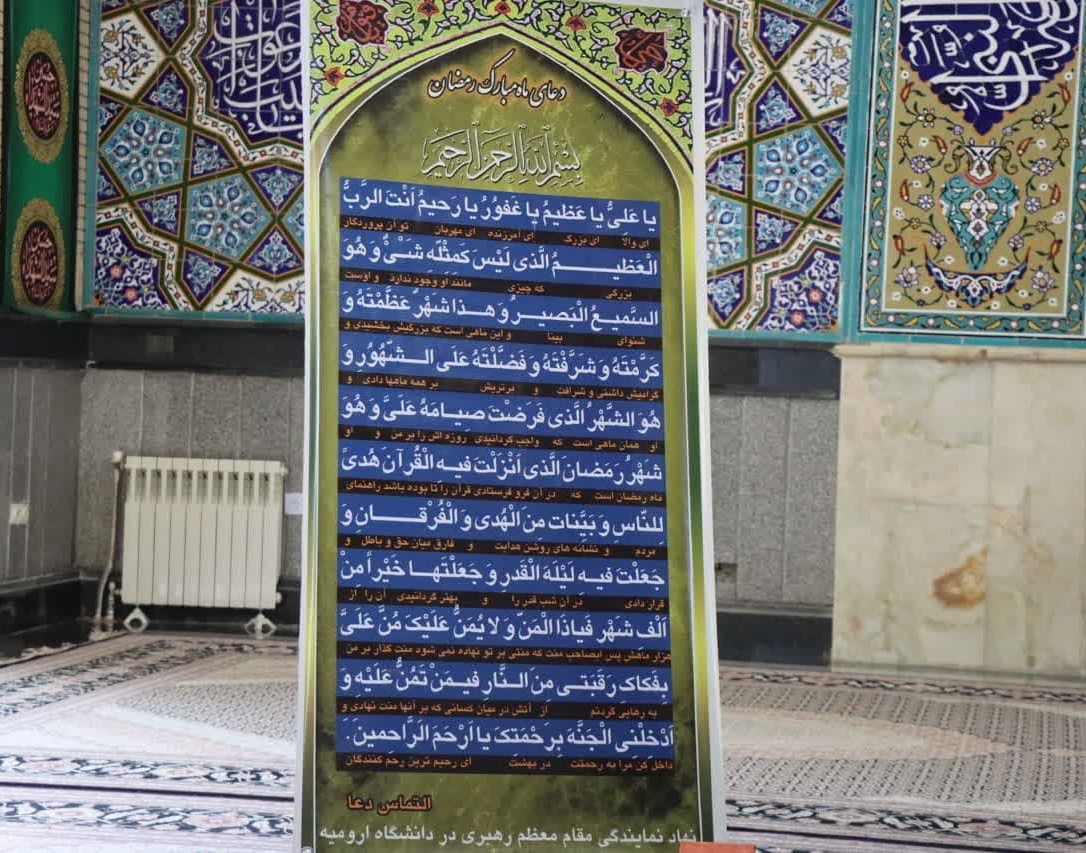 دعای ماه مبارک رمضان
بِسْمِ اللهِ الرَّحمنِ الرَّحیمِ
یا عَلِیُّ یا عَظیمُ یا غَفُورُ یا رَحیمُ اَنْتَ الرَّبُّ
ای والا ای بزرگ ای آمرزنده ای مهربان تو آن پروردگار
الْعَظیمُ الَّذی لَیْسَ کَمِثْلِه شَیْیٌ وَ هُوَ
بزرگی که چیزی مانند او وجود ندارد و اوست
السَّمیعُ الْبَصیرُ وَ هذا شَهْرٌ عَظَّمْتَهُ وَ
شنوای بینا و این ماهی است که بزرگیش بخشیدی و
کَرَّمْتَهُ وَ شَرَّفْتَهُ وَ فَضَّلْتَهُ عَلَی الشُّهُورِ وَ
گرامیش داشتی و شرافت و برتریش بر همه ماهها دادی و
هُوَ الشَّهْرُ الَّذی فَرَضْتَ صِیامَهُ عَلَیَّ وَ هُوَ
او همان ماهی است که واجب گردانیدی روزه اش را بر من و او
شَهْرُ رَمَضانَ الَّذی اَنْزَلْتَ فیهِ الْقُرآنَ هُدیً
ماه رمضان است که در آن فرو فرستادی قرآن را تا بوده باشد راهنمای
لِلنّاسِ وَ بَیِّنات مِنَ الْهُدی وَ الْفُرْقانِ وَ
مردم و نشانه های روشن هدایت و فارق میان حق و باطل و
جَعَلْتَ فیهِ لَیْلَهَ الْقَدرِ وَ جَعَلْتَها خَیْراً مِنْ
قرار دادی در آن شب قدر را و بهتر گردانیدی آن را از
اَلْفِ شَهْرٍ فَیاذَا الْمَنِّ وَ لا یُمَنُّ عَلَیْکَ مُنَّ عَلَیَّ
هزار ماهش پس ایصاحب منت که منتی بر تو نهاده نمی شود منت گذار بر من
بِفَکاکِ رَقَبَتی مِنَ النَّارِ فیمَنْ تَمُنُّ عَلَیْهِ وَ
به رهایی گردنم از آتش در میان کسانی که بر آنها منت نهادی و
اَدْخِلْنِی الْجَنَّهَ بِرَحْمَتِکَ یا اَرْحَمَ الرَّاحِمینَ.
داخل کن مرا به رحمتت در بهشت ای رحیم ترین رحم کنندگان
التماس دعا
نهاد نمایندگی مقام معظم رهبری در دانشگاه ارومیه